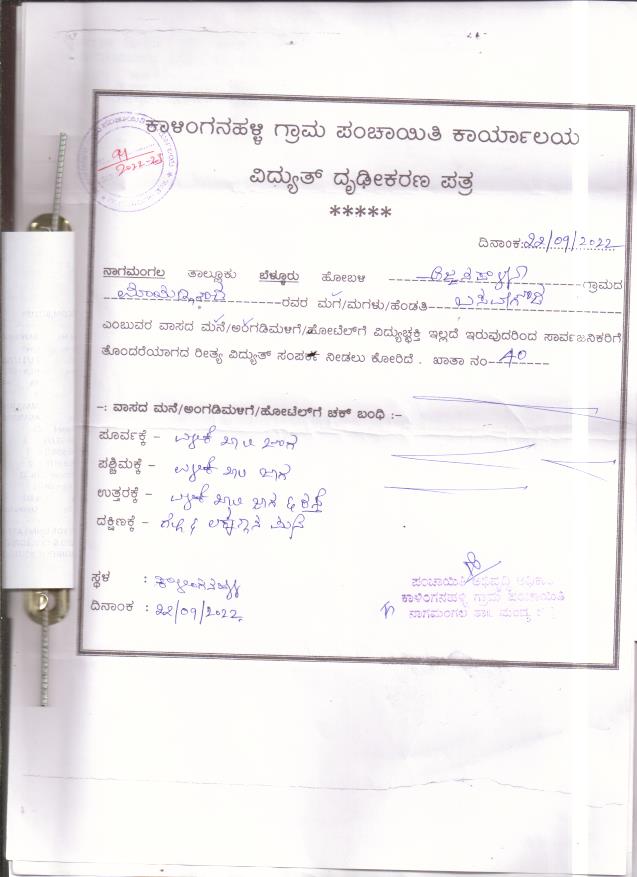 91
2022-23
ಕಾಳಿಂಗನಹಳ್ಳಿ ಗ್ರಾಮ ಪಂಚಾಯಿತಿ ಕಾರ್ಯಾಲಯ
ವಿದ್ಯುತ್ ದೃಢೀಕರಣ ಪತ್ರ
*****
ದಿನಾಂಕ:22/09/2022
ನಾಗಮಂಗಲ ತಾಲ್ಲೂಕು ಬೆಳ್ಳೂರು ಹೋಬಳಿ ಗ್ರಾಮದ
ರವರ ಮಗ/ಮಗಳು/ಹೆಂಡತಿ ಬಸವೇಗೌಡ
ಎಂಬುವರ ವಾಸದ ಮನೆ/ಅಂಗಡಿಮಳಿಗೆ/ಹೋಟೆಲ್‌ಗೆ ವಿದ್ಯುಚ್ಛಕ್ತಿ ಇಲ್ಲದೆ ಇರುವುದರಿಂದ ಸಾರ್ವಜನಿಕರಿಗೆ
ತೊಂದರೆಯಾಗದ ರೀತ್ಯ ವಿದ್ಯುತ್ ಸಂಪರ್ಕ ನೀಡಲು ಕೋರಿದೆ . ಖಾತಾ ನಂ 40
-: ವಾಸದ ಮನೆ/ಅಂಗಡಿಮಳಿಗೆ/ಹೋಟೆಲ್‌ಗೆ ಚಕ್ ಬಂಧಿ :-
ಪೂರ್ವಕ್ಕೆ – ಖಾಲಿ ಜಾಗ
ಪಶ್ಚಿಮಕ್ಕೆ – ಖಾಲಿ ಜಾಗ
ಉತ್ತರಕ್ಕೆ – ಖಾಲಿ ಜಾಗ & ರಸ್ತೆ
ದಕ್ಷಿಣಕ್ಕೆ – ಗಲ್ಲಿ & ಮನೆ
ಸ್ಥಳ : ಕಾಳಿಂಗನಹಳ್ಳಿ
ದಿನಾಂಕ : 22/09/2022
ಪಂಚಾಯಿತಿ ಅಭಿವೃದ್ಧಿ ಅಧಿಕಾರಿ
ಕಾಳಿಂಗನಹಳ್ಳಿ ಗ್ರಾಮ ಪಂಚಾಯಿತಿ
ನಾಗಮಂಗಲ ತಾಃ ಮಂಡ್ಯ